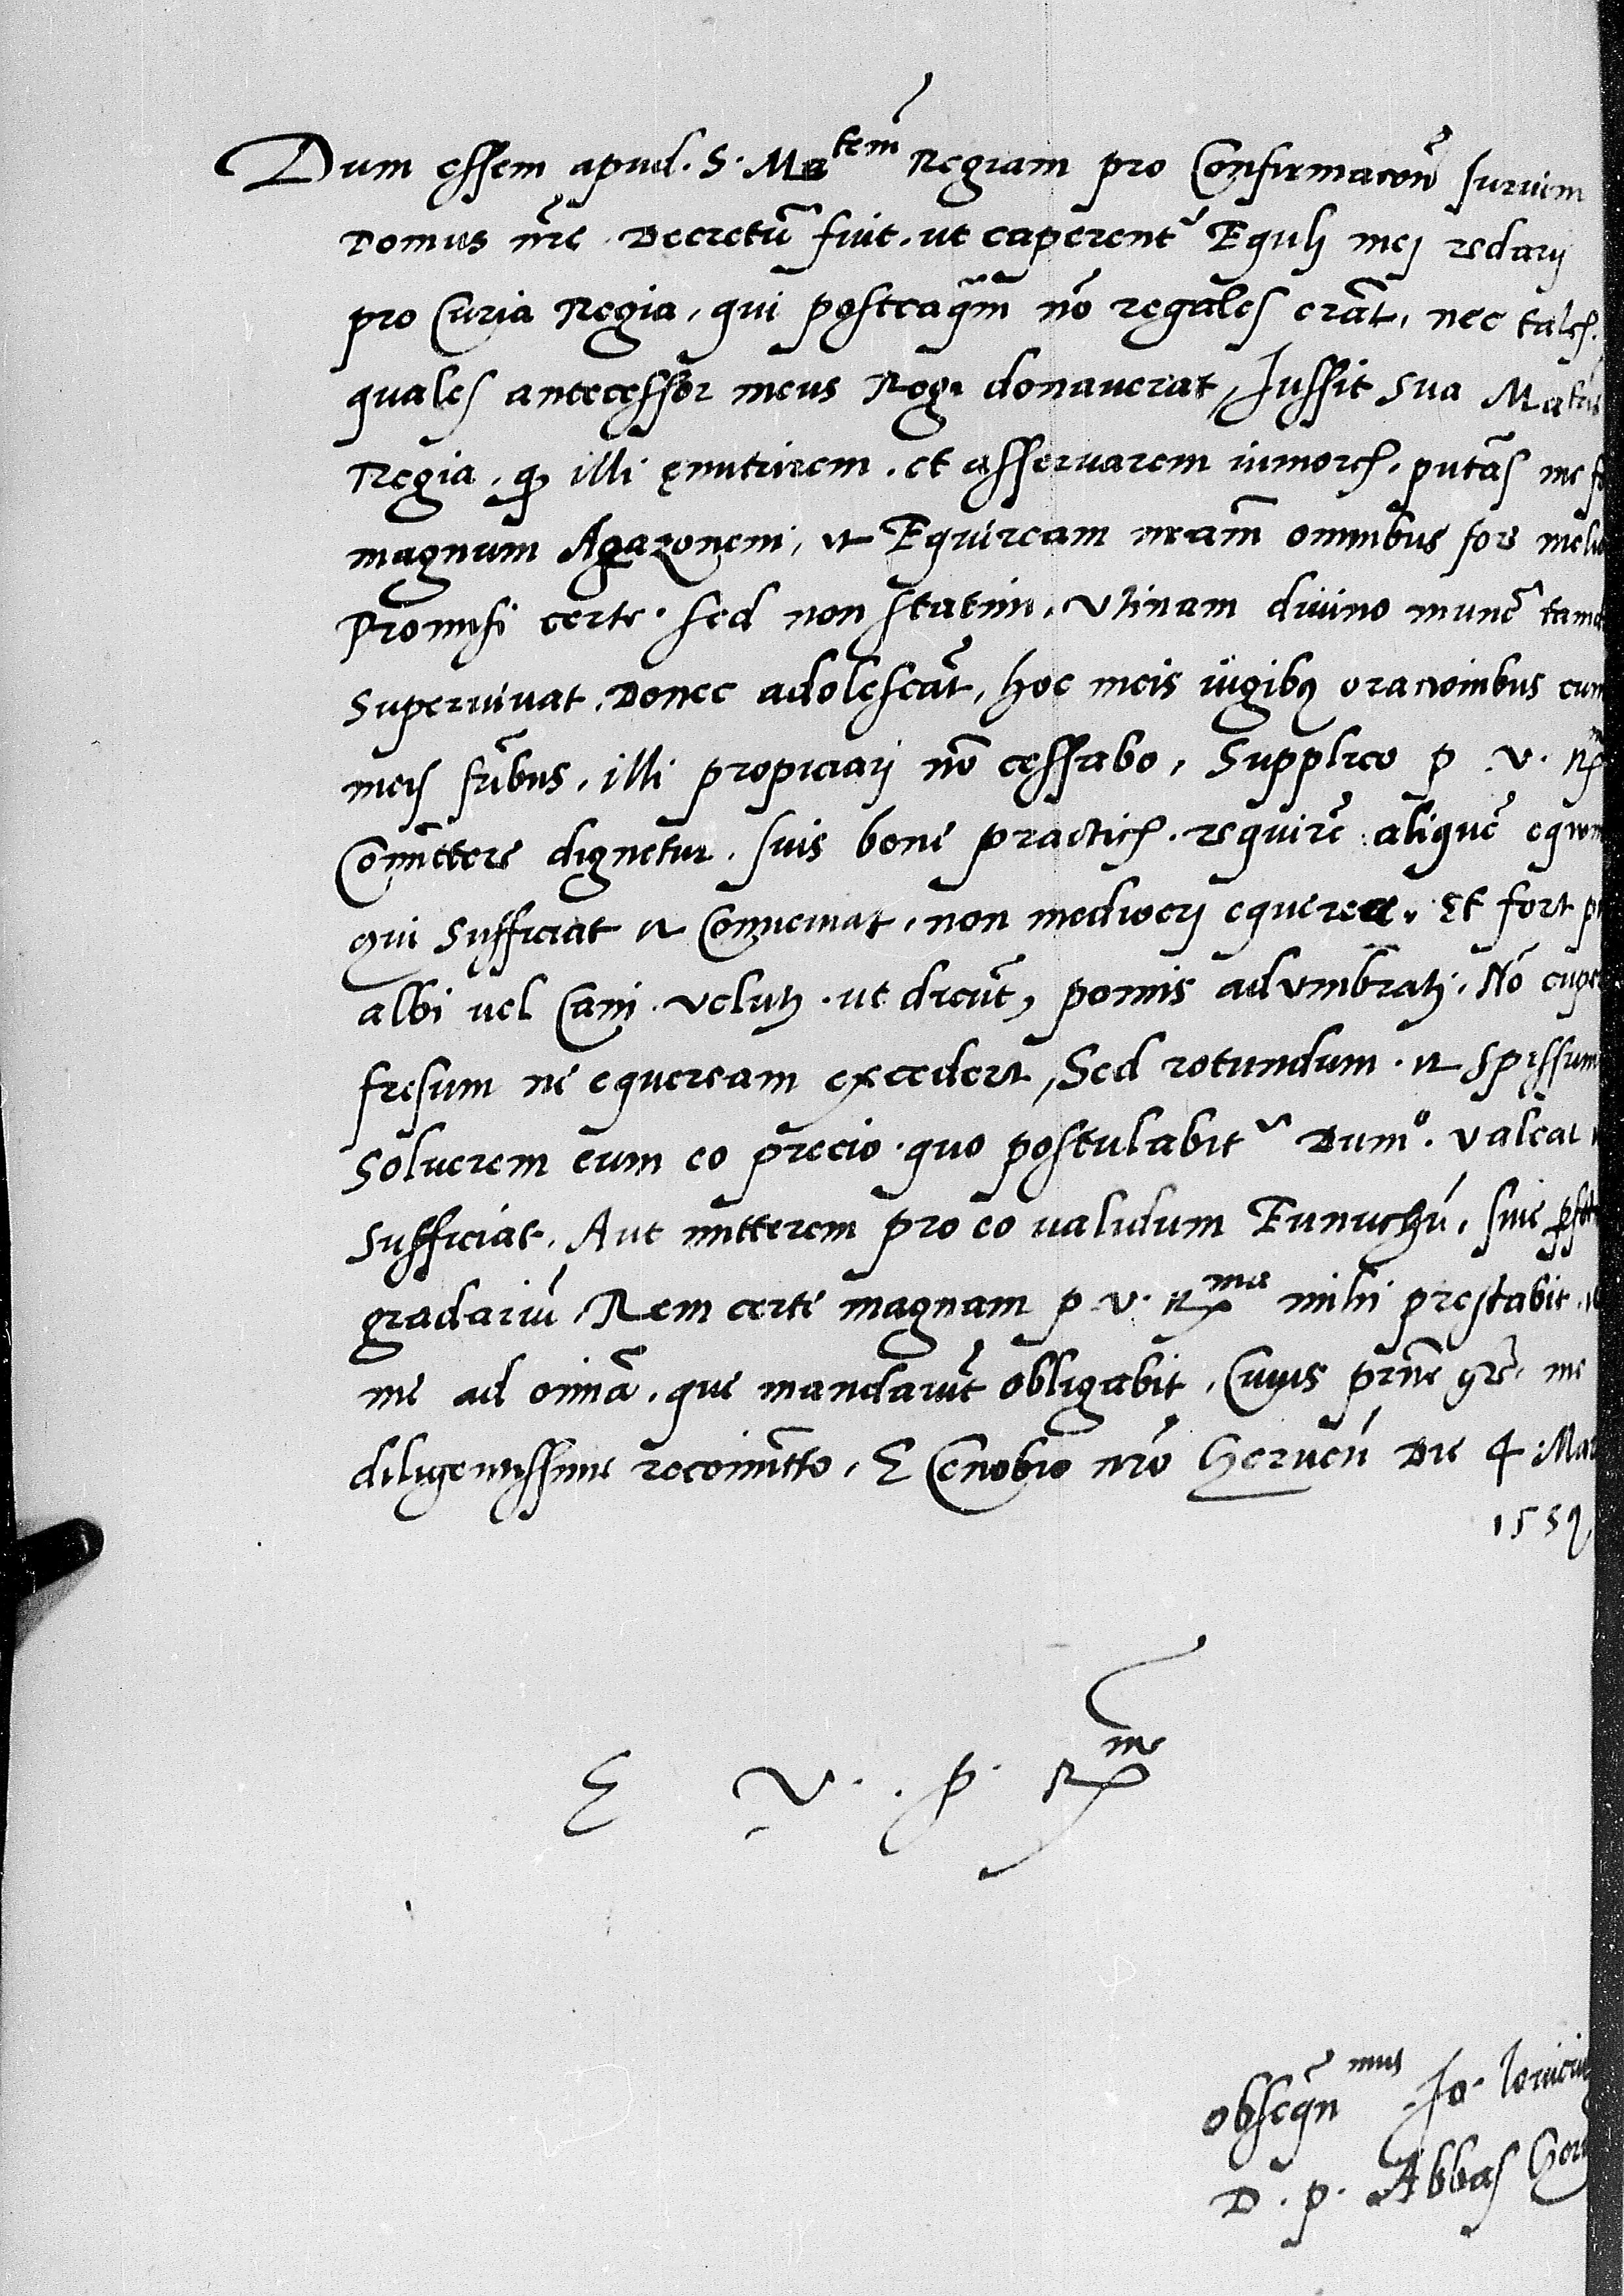 Dum essem apud. S. Matem̃ Regiam pro Confirmacoñe iurium
Domus nr̃e. Decretũ fuit. ut caperent᷑ Equli mej redarij
pro Curia Regia, qui posteaqm̃ nõ regales erãt, nec tales.
quales antecessor meus Regi donauerat, Jussit sua Matas
Regia. qƺ illi enutrirem. et asseruarem iuniores. putãs me
magnum Agazonem, et Equiream meam̃ omnibus fore
Promisi certe. sed non statim. Utinam diuino munẽ
Superuiuat. Donec adolescãt, hoc meis iugibus oracionibus cum
meis fr̃ibus, illi propiciarj nõ cessabo, Supplico p. v. Rx
Com̃ittere dignetur. suis bone practices. requirẽ aliquẽ equum
qui sufficiat et Conueniat. non mediocrj equiree. Et fort
albi uel Canj. velutj. ut dicũt, pomis adumbratj. Nõ
fresum ne equeream excederet, Sed rotundum. et spissum
Soluerem eum eo precio quo postulabit᷑ Dumo. valeat
sufficiat. Aut mitterem pro eo ualidum Eunuchũ. siue
gradariũ. Rem certe magnam p. v. Rxma mihi prestabit.
me ad omĩa. que mandauerit obligabit. Cuius pr̃ne gr̃e. me
diligentissime recom̃itto. E Cenobio nr̃o Hereuen̄ Die 4. Mar
1559
E v. p. Rxme
obseqñmus Jo.
D. p. Abbas